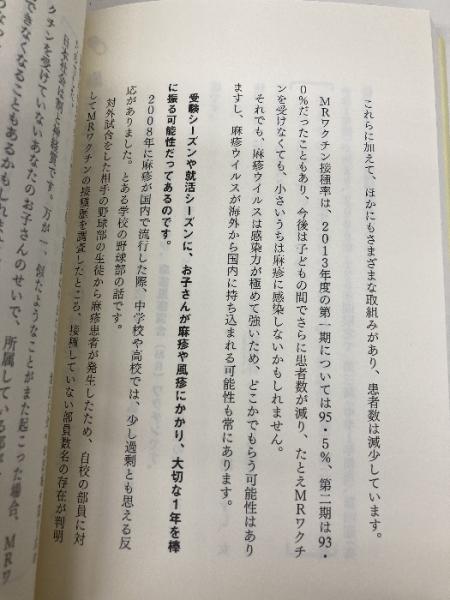 これらに加えて、ほかにもさまざまな取組みがあり、患者数は減少しています。
MRワクチン接種率は、2013年度の第一期については95・5%、第二期は93・
0%だったこともあり、今後は子どもの間でさらに患者数が減り、たとえMRワクチ
ンを受けなくても、小さいうちは麻疹に感染しないかもしれません。
それでも、麻疹ウイルスは感染力が極めて強いため、どこかでもらう可能性はあり
ますし、麻疹ウイルスが海外から国内に持ち込まれる可能性も常にあります。
受験シーズンや就活シーズンに、お子さんが麻疹や風疹にかかり、大切な1年を棒
に振る可能性だってあるのです。
2008年に麻疹が国内で流行した際、中学校や高校では、少し過剰とも思える反
応がありました。とある学校の野球部の話です。
対外試合をした相手の野球部の生徒から麻疹患者が発生したため、自校の部員に対
してMRワクチンの接種歴を調査したところ、接種していない部員数名の存在が判明
です。万が一、似たようなことがまた起こった場合、MRワ
クチンを受けていないあなたのお子さんのせいで、所属している部
できなくなることもあるかもしれま